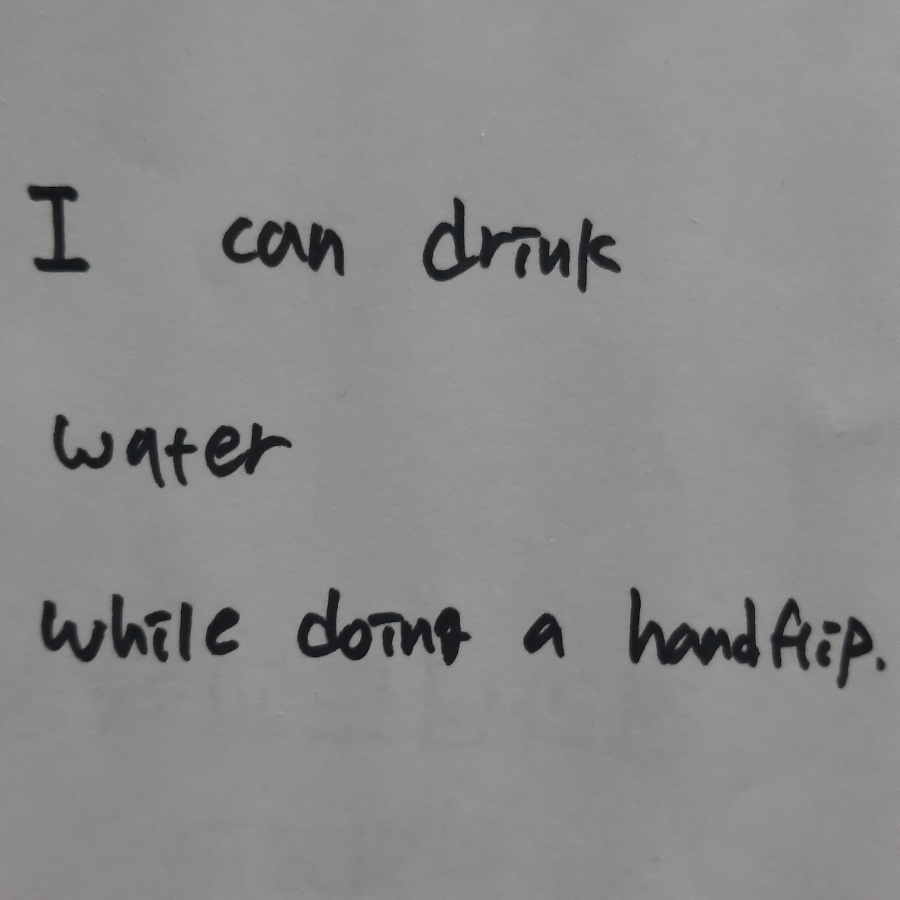 I can drink
water
while doing a handflip.